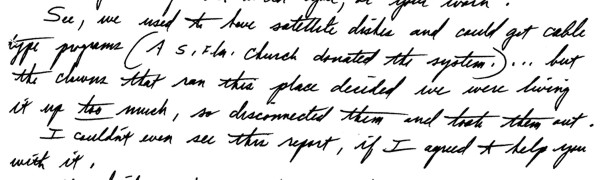 See, we used to have satellite dishes and could get cable
type programs (A S. Fla. Church donated the system.)... but
the clowns that ran this place decided we were living
it up too much, so disconnected them and took them out.
I couldn't even see this report, if I agreed to help you
with it.